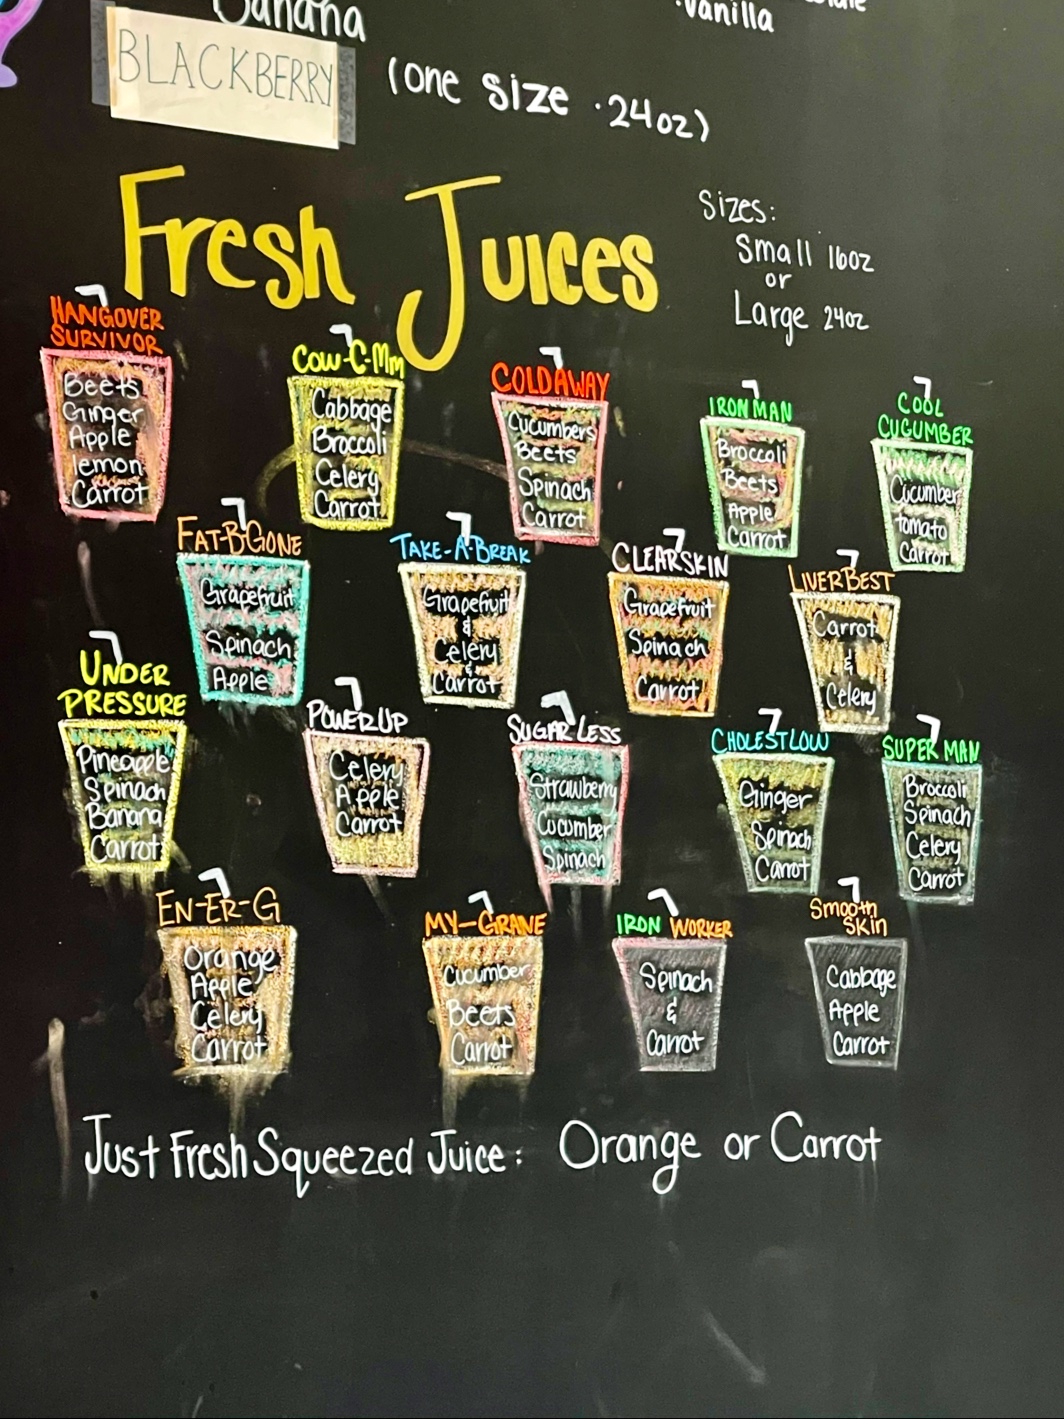 Banana
Vanilla
BLACKBERRY
(one size · 24oz)
Fresh Juices
Sizes:
Small 16oz
or
Large 24oz
HANGOVER
SURVIVOR
Beets
Ginger
Apple
lemon
Carrot
COW-C-Mm
Cabbage
Broccoli
Celery
Carrot
COLDAWAY
Cucumbers
Beets
Spinach
Carrot
IRON MAN
Broccoli
Beets
Apple
Carrot
COOL
CUCUMBER
Cucumber
Tomato
Carrot
FAT-B-GONE
Grapefruit
Spinach
Apple
TAKE-A-BREAK
Grapefruit
&
Celery
&
Carrot
CLEARSKIN
Grapefruit
Spinach
Carrot
LIVERBEST
Carrot
&
Celery
UNDER
PRESSURE
Pineapple
Spinach
Banana
Carrot
POWERUP
Celery
Apple
Carrot
SUGAR LESS
Strawberry
Cucumber
Spinach
CHOLESTLOW
Ginger
Spinach
Carrot
SUPER MAN
Broccoli
Spinach
Celery
Carrot
EN-ER-G
Orange
Apple
Celery
Carrot
MY-GRANE
Cucumber
Beets
Carrot
IRON WORKER
Spinach
&
Carrot
Smooth
SKIN
Cabbage
Apple
Carrot
Just Fresh Squeezed Juice: Orange or Carrot